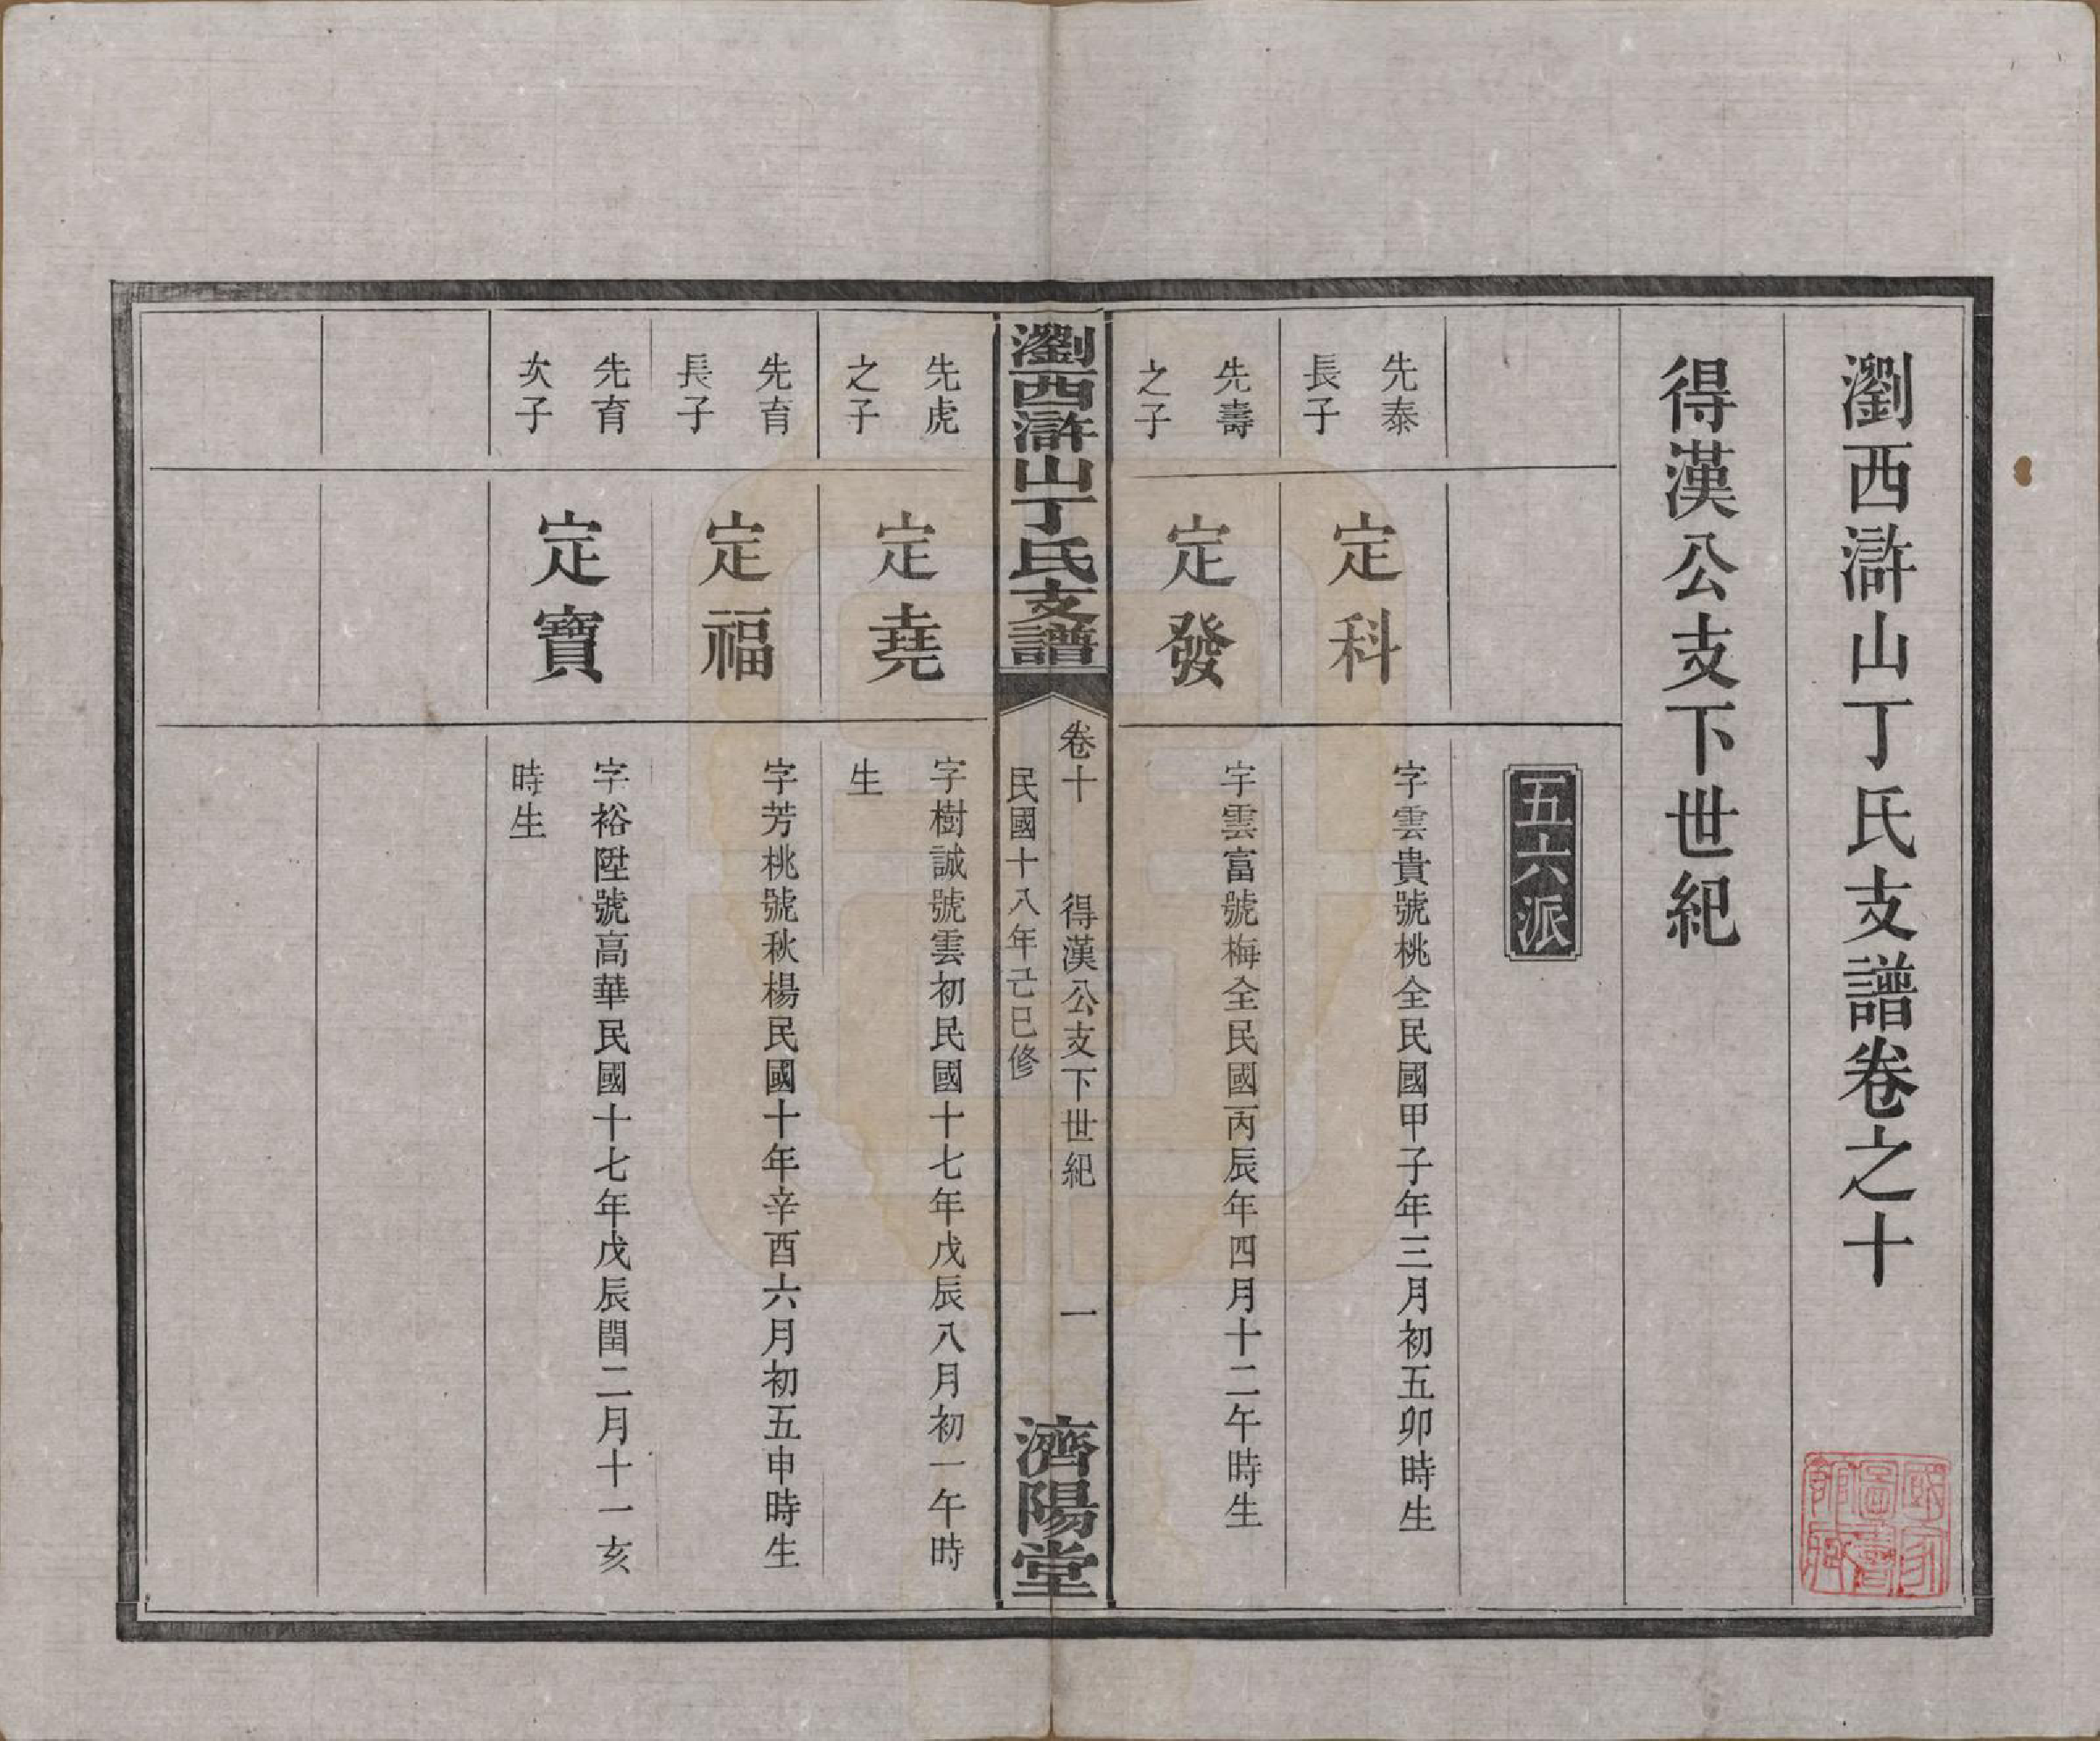 瀏西滸山丁氏支譜卷之十
得漢公支下世紀
五六派
先泰
長子
定科
字雲貴號桃全民國甲子年三月初五卯時生
先壽
之子
定發
字雲富號梅全民國丙辰年四月十二午時生
瀏西滸山丁氏支譜
卷十 得漢公支下世紀 一
民國十八年己巳修
濟陽堂
先虎
之子
定堯
字樹誠號雲初民國十七年戊辰八月初一午時
生
先育
長子
定福
字芳桃號秋楊民國十年辛酉六月初五申時生
先育
次子
定寶
字裕陞號高華民國十七年戊辰閏二月十一亥
時生
國家
圖書
館藏